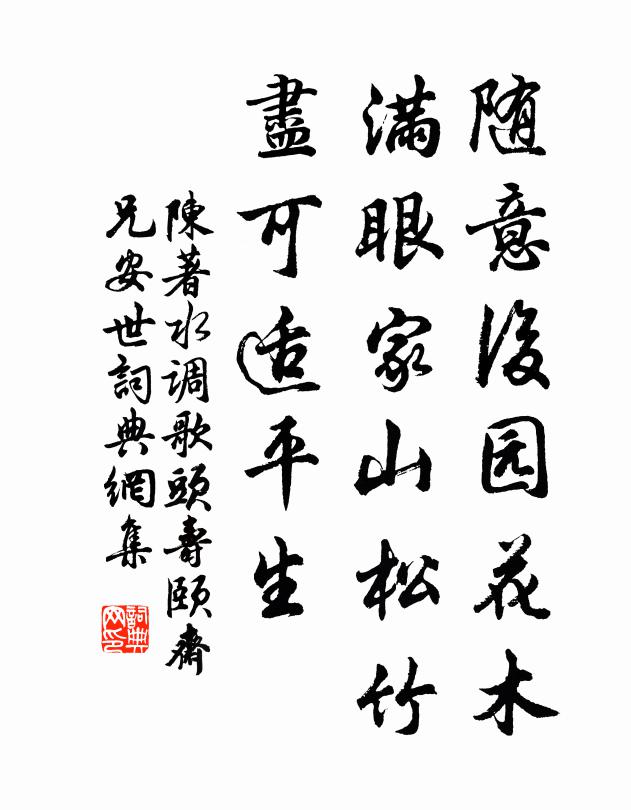 随意後园花木
满眼家山松竹
盡可适平生
陳著水调歌頭壽頤齋
兄安世詞典網集
詞典网印